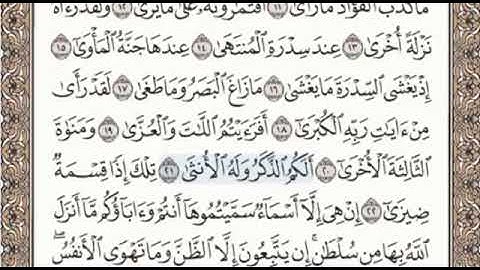 مَا كَذَبَ ٱلْفُؤَادُ مَا رَأَىٰٓ ١١ أَفَتُمَٰرُونَهُۥ عَلَىٰ مَا يَرَىٰ ١٢ وَلَقَدْ رَءَاهُ
نَزْلَةً أُخْرَىٰ ١٣ عِندَ سِدْرَةِ ٱلْمُنتَهَىٰ ١٤ عِندَهَا جَنَّةُ ٱلْمَأْوَىٰٓ ١٥
إِذْ يَغْشَى ٱلسِّدْرَةَ مَا يَغْشَىٰ ١٦ مَا زَاغَ ٱلْبَصَرُ وَمَا طَغَىٰ ١٧ لَقَدْ رَأَىٰ
مِنْ ءَايَٰتِ رَبِّهِ ٱلْكُبْرَىٰٓ ١٨ أَفَرَءَيْتُمُ ٱللَّٰتَ وَٱلْعُزَّىٰ ١٩ وَمَنَوٰةَ
ٱلثَّالِثَةَ ٱلْأُخْرَىٰٓ ٢٠ أَلَكُمُ ٱلذَّكَرُ وَلَهُ ٱلْأُنثَىٰ ٢١ تِلْكَ إِذًا قِسْمَةٌ
ضِيزَىٰٓ ٢٢ إِنْ هِىَ إِلَّآ أَسْمَآءٌ سَمَّيْتُمُوهَآ أَنتُمْ وَءَابَآؤُكُم مَّآ أَنزَلَ
ٱللَّهُ بِهَا مِن سُلْطَٰنٍ ۚ إِن يَتَّبِعُونَ إِلَّا ٱلظَّنَّ وَمَا تَهْوَى ٱلْأَنفُسُ ۖ